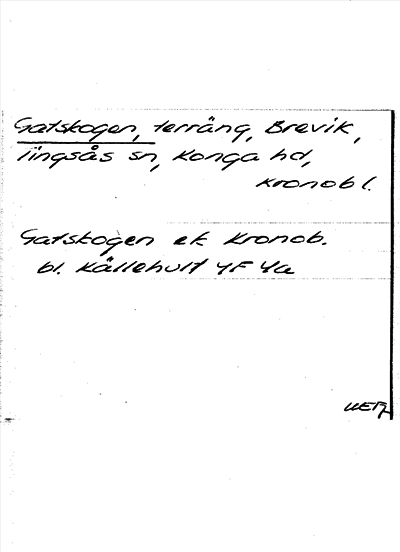 Gatskogen, terräng, Brevik,
Tingsås sn, Konga hd,
Kronob l.
Gatskogen ek Kronob.
bl. Källehult 4F 4a